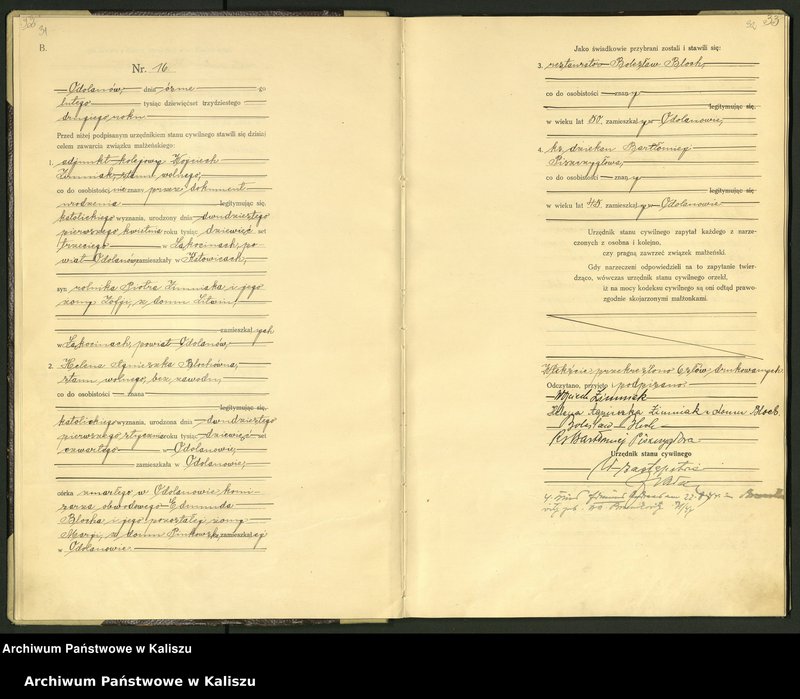 33
31
B.
Nr. 16
Odolanów, dnia ósme go
lutego tysiąc dziewięćset trzydziestego
drugiego roku
Przed niżej podpisanym urzędnikiem stanu cywilnego stawili się dzisiaj
celem zawarcia związku małżeńskiego:
1. adjunkt kolejowy Wojciech
Zimniak, stanu wolnego,
co do osobistości nie znany przez dokument
urodzenia legitymując się,
katolickiego wyznania, urodzony dnia dwudziestego
pierwszego kwietnia roku tysiąc dziewięć set
trzeciego w Łąkocinach, po-
wiat Odolanów, zamieszkały w Katowicach,
syn rolnika Piotra Zimniaka, i jego
żony Zofji, z domu Litwin,
zamieszkałych
w Łąkocinach, powiat Odolanów,
2. Helena Agnieszka Blochówna,
stanu wolnego, bez zawodu,
co do osobistości znana
legitymując się,
katolickiego wyznania, urodzona dnia dwudziestego
pierwszego stycznia roku tysiąc dziewięć set
czwartego w Odolanowie,
zamieszkała w Odolanowie,
córka zmarłego w Odolanowie komi-
sarza obwodowego Edmunda
Blocha i jego pozostałej żony
Marji, z domu Pinkowska, zamieszkałej
w Odolanowie
32
33
Jako świadkowie przybrani zostali i stawili się:
3. restaurator Bolesław Bloch,
co do osobistości znany
legitymując się,
w wieku lat 50 zamieszkały w Odolanowie,
4. ks. dziekan Bartłomiej
co do osobistości znany
legitymując się
w wieku lat 48 zamieszkały w Odolanowie
Urzędnik stanu cywilnego zapytał każdego z narze-
czonych z osobna i kolejno,
czy pragną zawrzeć związek małżeński.
Gdy narzeczeni odpowiedzieli na to zapytanie twier-
dząco, wówczas urzędnik stanu cywilnego orzekł,
iż na mocy kodeksu cywilnego są oni odtąd prawo-
zgodnie skojarzonymi małżonkami.
W tekście przekreślono 6 słów drukowanych
Odczytano, przyjęto i podpisano:
Wojciech Zimniak
Helena Agnieszka Zimniak z domu Bloch
Bolesław Bloch
Ks Bartłomiej
Urzędnik stanu cywilnego
W zastępstwie
Archiwum Państwowe w Kaliszu
Archiwum Państwowe w Kaliszu